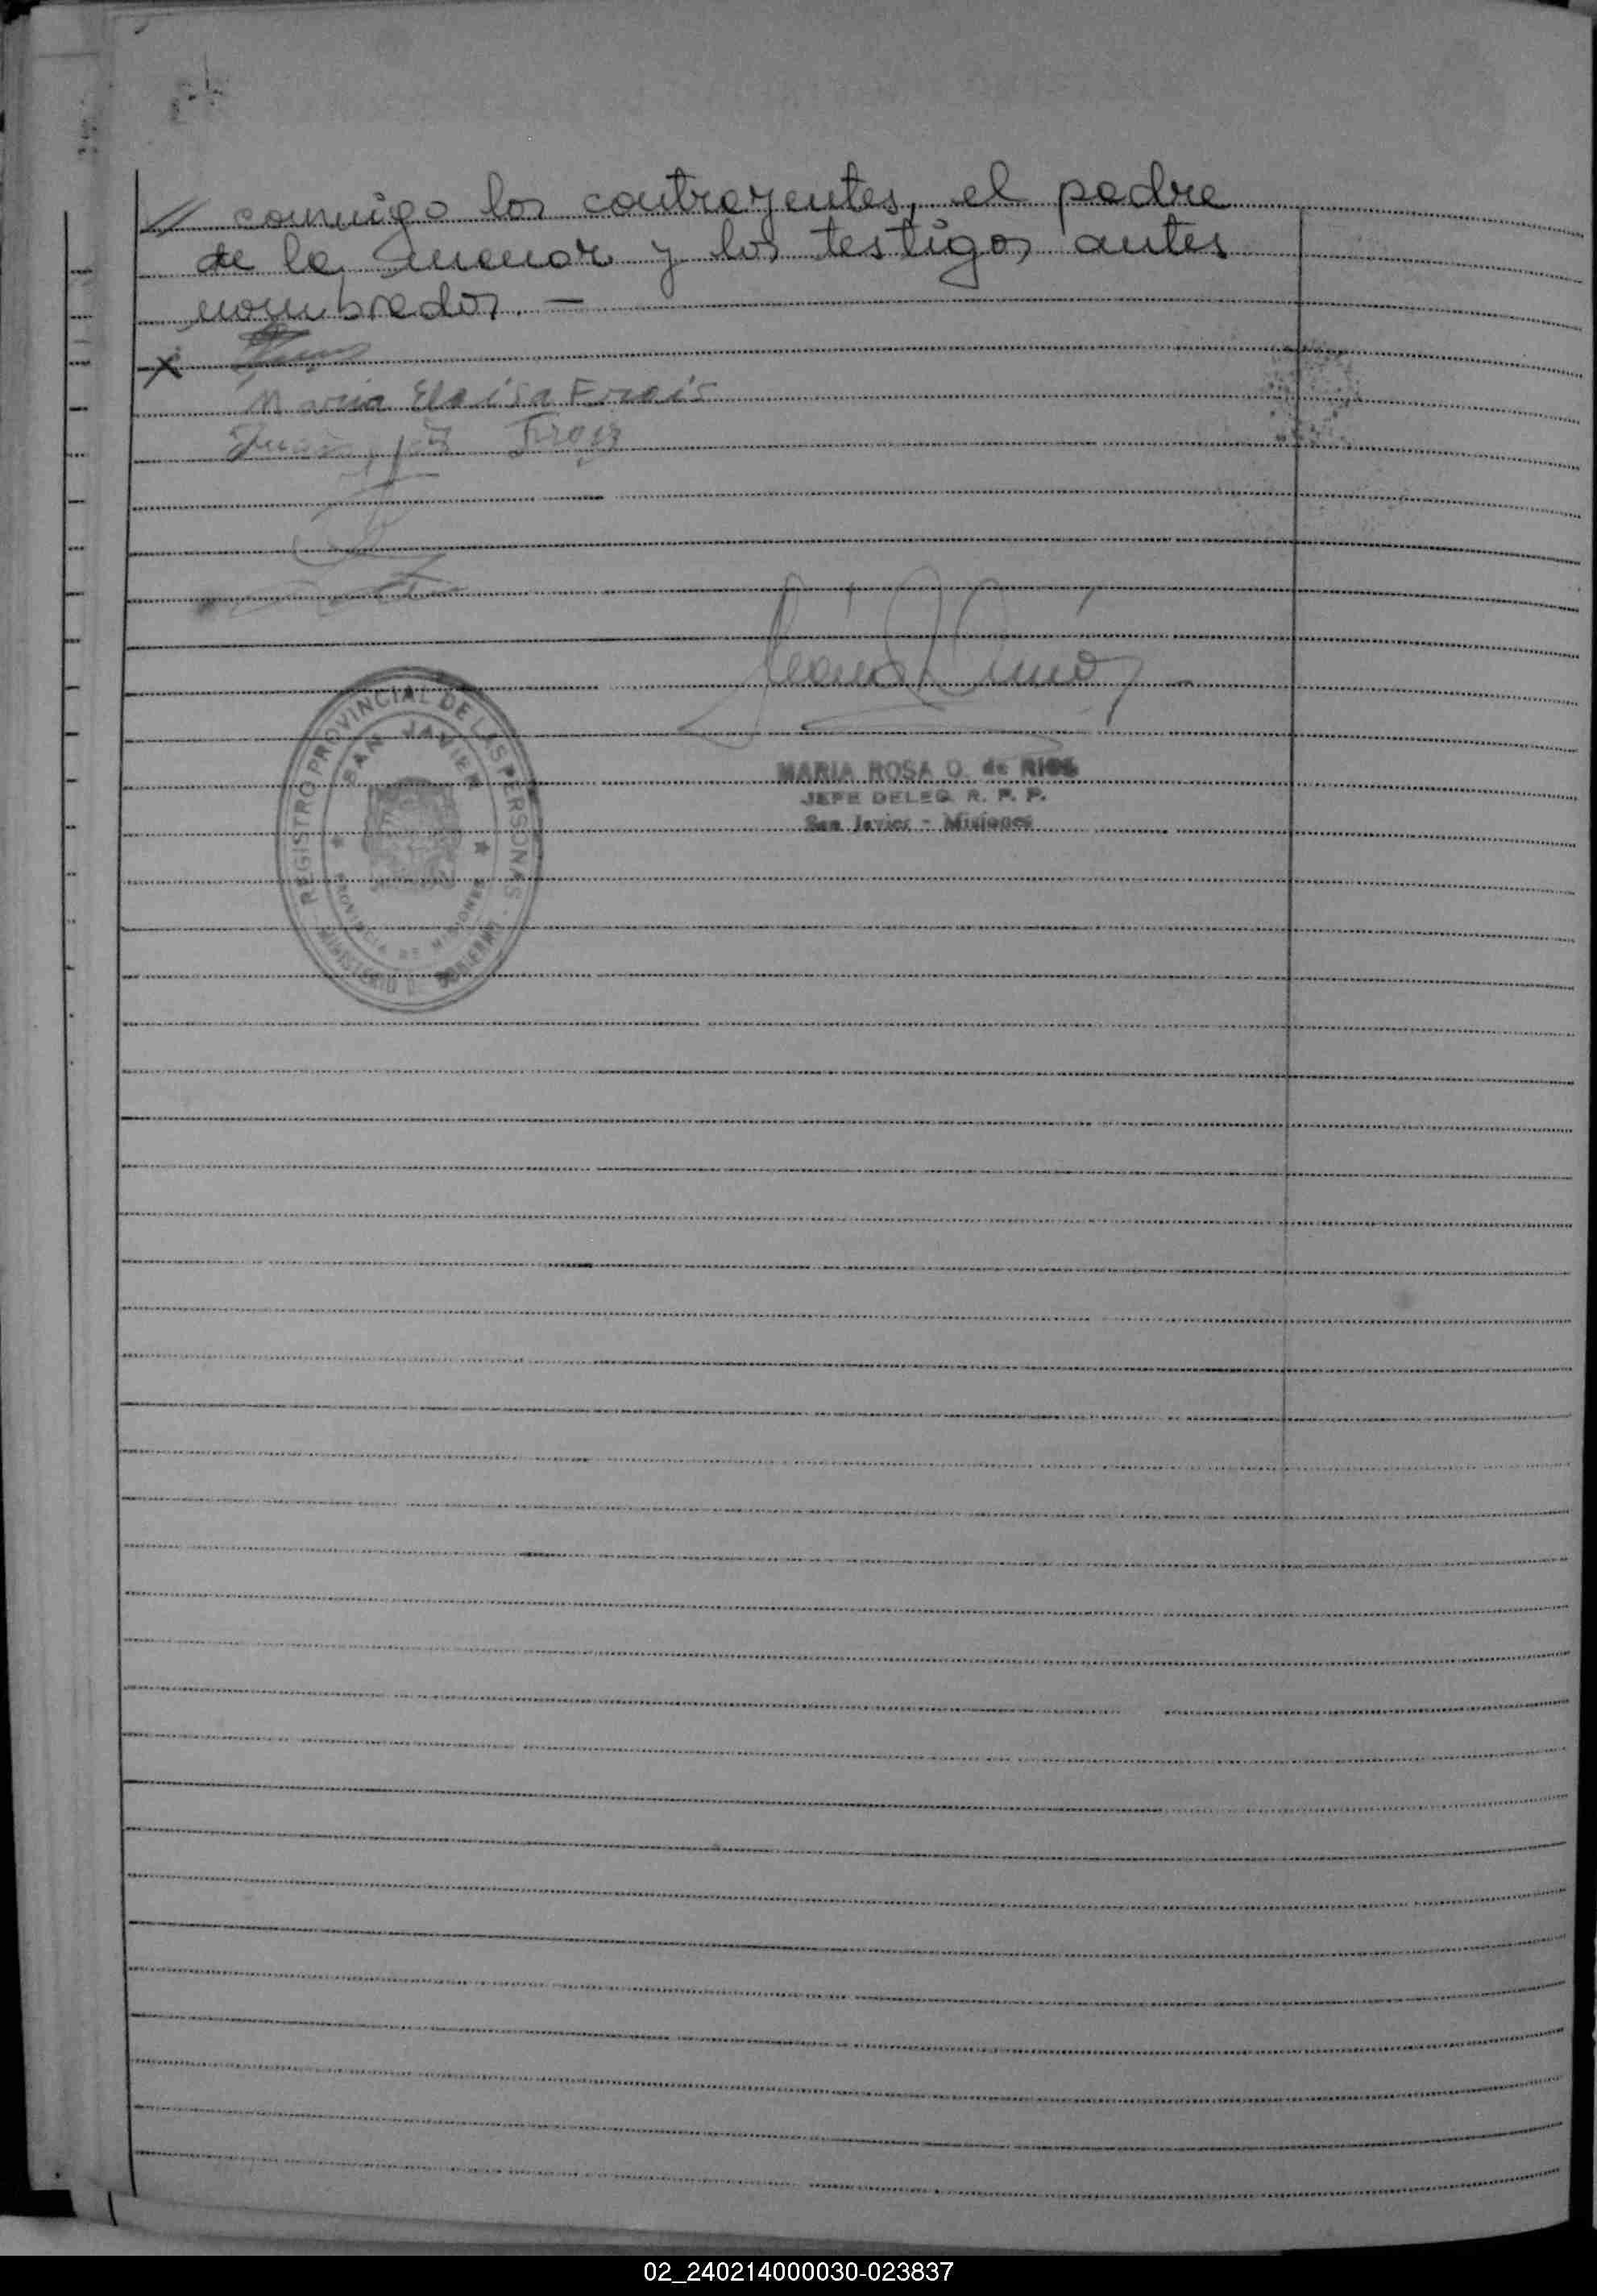 // conmigo los contrayentes, el padre
de la menor y los testigos antes
nombrados. —
X
Maria Eloisa Frois
Juan Frois
REGISTRO PROVINCIAL DE LAS PERSONAS
SAN JAVIER
PROVINCIA DE MISIONES
MINISTERIO DE GOBIERNO
MARIA ROSA O. de RIOS
JEFE DELEG. R. P. P.
San Javier - Misiones
02_240214000030-023837